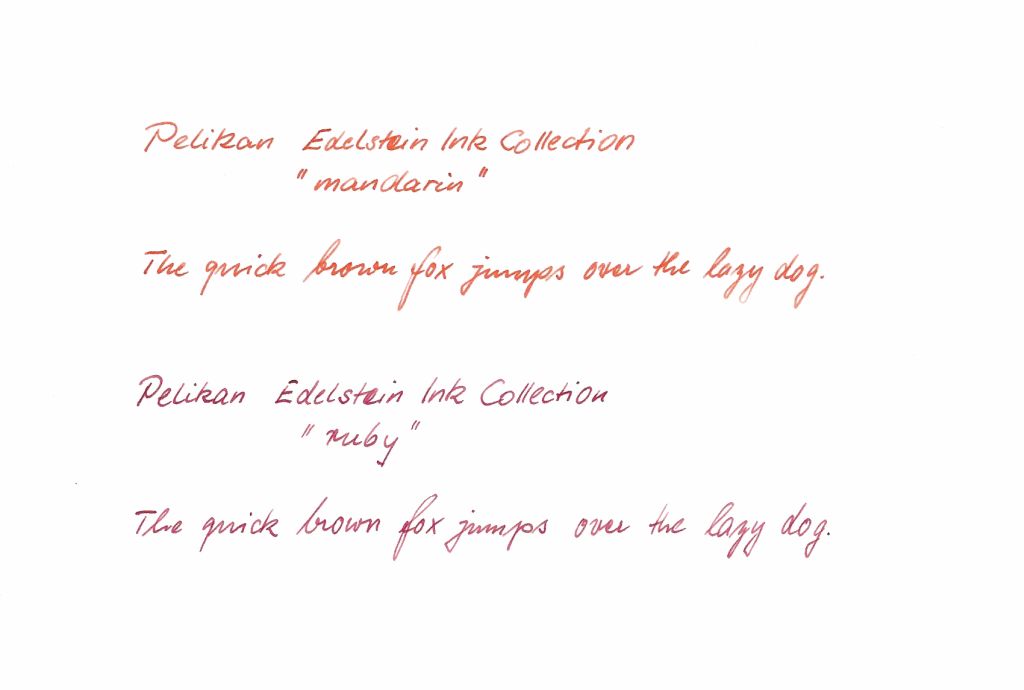 Pelikan Edelstein Ink Collection
"mandarin"
The quick brown fox jumps over the lazy dog.
Pelikan Edelstein Ink Collection
"ruby"
The quick brown fox jumps over the lazy dog.